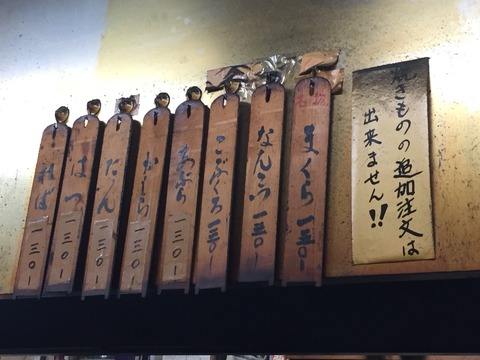 焼きものの追加注文は
出来ません!!
まくら 一五〇-
なんこつ 一五〇-
こぶくろ 一五〇-
あぶら 一三〇-
かしら 一三〇-
たん 一三〇-
はつ 一三〇-
れば 一三〇-